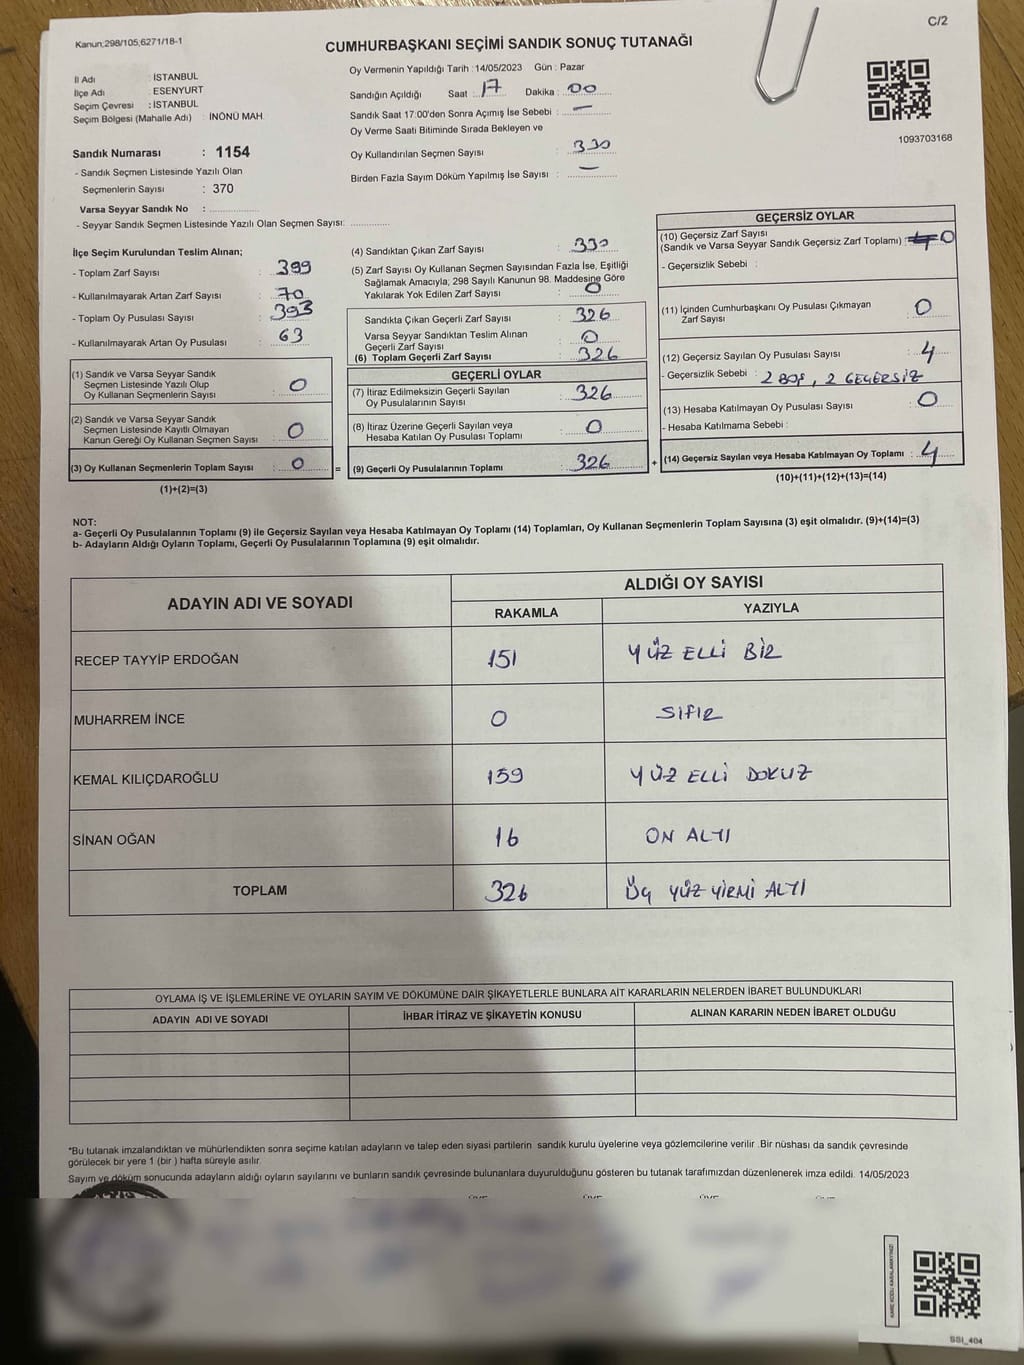 C/2
Kanun;298/105;6271/18-1
CUMHURBAŞKANI SEÇİMİ SANDIK SONUÇ TUTANAĞI
1093703168
İl Adı : İSTANBUL
İlçe Adı : ESENYURT
Seçim Çevresi : İSTANBUL
Seçim Bölgesi (Mahalle Adı) : İNÖNÜ MAH.
Sandık Numarası : 1154
- Sandık Seçmen Listesinde Yazılı Olan
Seçmenlerin Sayısı : 370
Varsa Seyyar Sandık No :
- Seyyar Sandık Seçmen Listesinde Yazılı Olan Seçmen Sayısı:
Oy Vermenin Yapıldığı Tarih : 14/05/2023 Gün : Pazar
Sandığın Açıldığı Saat : 17 Dakika : 00
Sandık Saat 17:00'den Sonra Açımış İse Sebebi : —
Oy Verme Saati Bitiminde Sırada Bekleyen ve
Oy Kullandırılan Seçmen Sayısı : 330
Birden Fazla Sayım Döküm Yapılmış İse Sayısı : —
İlçe Seçim Kurulundan Teslim Alınan;
- Toplam Zarf Sayısı : 399
- Kullanılmayarak Artan Zarf Sayısı : 70
- Toplam Oy Pusulası Sayısı : 393
- Kullanılmayarak Artan Oy Pusulası : 63
(1) Sandık ve Varsa Seyyar Sandık
Seçmen Listesinde Yazılı Olup
Oy Kullanan Seçmenlerin Sayısı : 0
(2) Sandık ve Varsa Seyyar Sandık
Seçmen Listesinde Kayıtlı Olmayan
Kanun Gereği Oy Kullanan Seçmen Sayısı : 0
(3) Oy Kullanan Seçmenlerin Toplam Sayısı : 0
(1)+(2)=(3)
(4) Sandıktan Çıkan Zarf Sayısı : 330
(5) Zarf Sayısı Oy Kullanan Seçmen Sayısından Fazla İse, Eşitliği
Sağlamak Amacıyla; 298 Sayılı Kanunun 98. Maddesine Göre
Yakılarak Yok Edilen Zarf Sayısı : 0
Sandıkta Çıkan Geçerli Zarf Sayısı : 326
Varsa Seyyar Sandıktan Teslim Alınan
Geçerli Zarf Sayısı : 0
(6) Toplam Geçerli Zarf Sayısı : 326
GEÇERLİ OYLAR
(7) İtiraz Edilmeksizin Geçerli Sayılan
Oy Pusulalarının Sayısı : 326
(8) İtiraz Üzerine Geçerli Sayılan veya
Hesaba Katılan Oy Pusulası Toplamı : 0
= (9) Geçerli Oy Pusulalarının Toplamı : 326 +
GEÇERSİZ OYLAR
(10) Geçersiz Zarf Sayısı
(Sandık ve Varsa Seyyar Sandık Geçersiz Zarf Toplamı) : 0
- Geçersizlik Sebebi :
(11) İçinden Cumhurbaşkanı Oy Pusulası Çıkmayan
Zarf Sayısı : 0
(12) Geçersiz Sayılan Oy Pusulası Sayısı : 4
- Geçersizlik Sebebi : 2 BOŞ, 2 GEÇERSİZ
(13) Hesaba Katılmayan Oy Pusulası Sayısı : 0
- Hesaba Katılmama Sebebi :
(14) Geçersiz Sayılan veya Hesaba Katılmayan Oy Toplamı : 4
(10)+(11)+(12)+(13)=(14)
NOT:
a- Geçerli Oy Pusulalarının Toplamı (9) ile Geçersiz Sayılan veya Hesaba Katılmayan Oy Toplamı (14) Toplamları, Oy Kullanan Seçmenlerin Toplam Sayısına (3) eşit olmalıdır. (9)+(14)=(3)
b- Adayların Aldığı Oyların Toplamı, Geçerli Oy Pusulalarının Toplamına (9) eşit olmalıdır.
ADAYIN ADI VE SOYADI ALDIĞI OY SAYISI
RAKAMLA YAZIYLA
RECEP TAYYİP ERDOĞAN 151 YÜZ ELLİ BİR
MUHARREM İNCE 0 SIFIR
KEMAL KILIÇDAROĞLU 159 YÜZ ELLİ DOKUZ
SİNAN OĞAN 16 ON ALTI
TOPLAM 326 ÜÇ YÜZ YİRMİ ALTI
OYLAMA İŞ VE İŞLEMLERİNE VE OYLARIN SAYIM VE DÖKÜMÜNE DAİR ŞİKAYETLERLE BUNLARA AİT KARARLARIN NELERDEN İBARET BULUNDUKLARI
ADAYIN ADI VE SOYADI İHBAR İTİRAZ VE ŞİKAYETİN KONUSU ALINAN KARARIN NEDEN İBARET OLDUĞU
*Bu tutanak imzalandıktan ve mühürlendikten sonra seçime katılan adayların ve talep eden siyasi partilerin sandık kurulu üyelerine veya gözlemcilerine verilir .Bir nüshası da sandık çevresinde
görülecek bir yere 1 (bir ) hafta süreyle asılır.
Sayım ve döküm sonucunda adayların aldığı oyların sayılarını ve bunların sandık çevresinde bulunanlara duyurulduğunu gösteren bu tutanak tarafımızdan düzenlenerek imza edildi. 14/05/2023
SSI_404